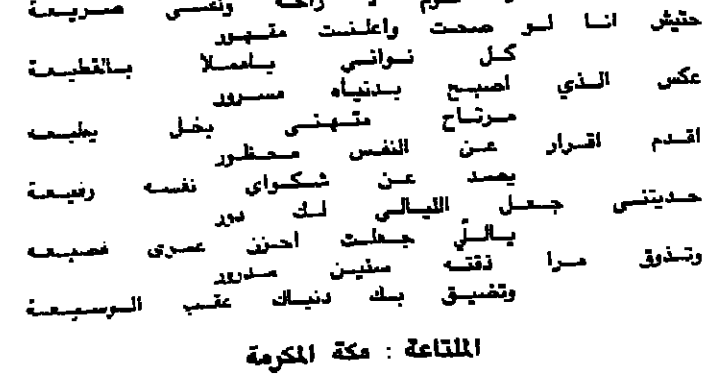 نوم و راحة ونفسي صريعة
حتيش انا لو صحت واعلنت مقهور
كل نواني ياعملا بالقطيعة
عكس الذي اصبح بدنياه مسرور
مرتاح متهني بخل يطيعه
اقدم اقرار عن النفس محظور
يصد عن شكواي نفسه رفيعة
حديتني جعل الليالي لك دور
ياللّي جعلت احزن عمرى غصيبعه
وتذوق مرا ذقته سنين مدرور
وتضيق بك دنياك عقب الوسيعة
الملتاعة : مكة المكرمة